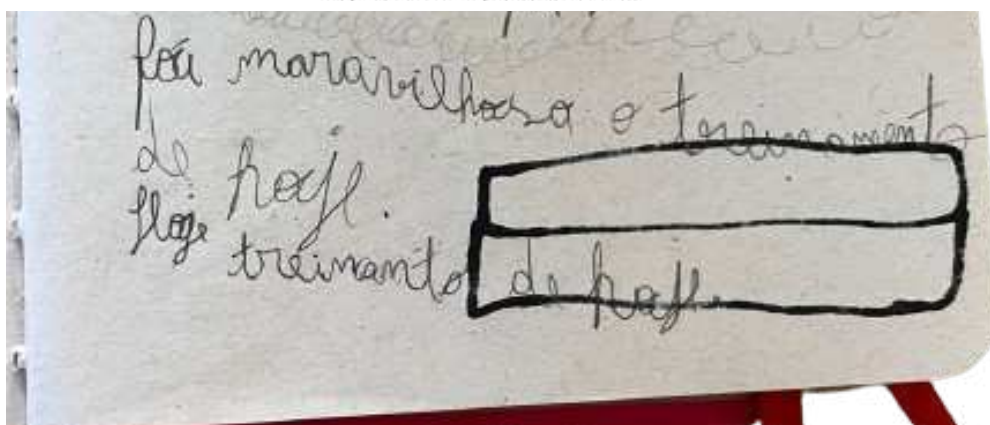 foi maravilhosa o treinamento
de hoje.
Hoje
treinamto de hoje.